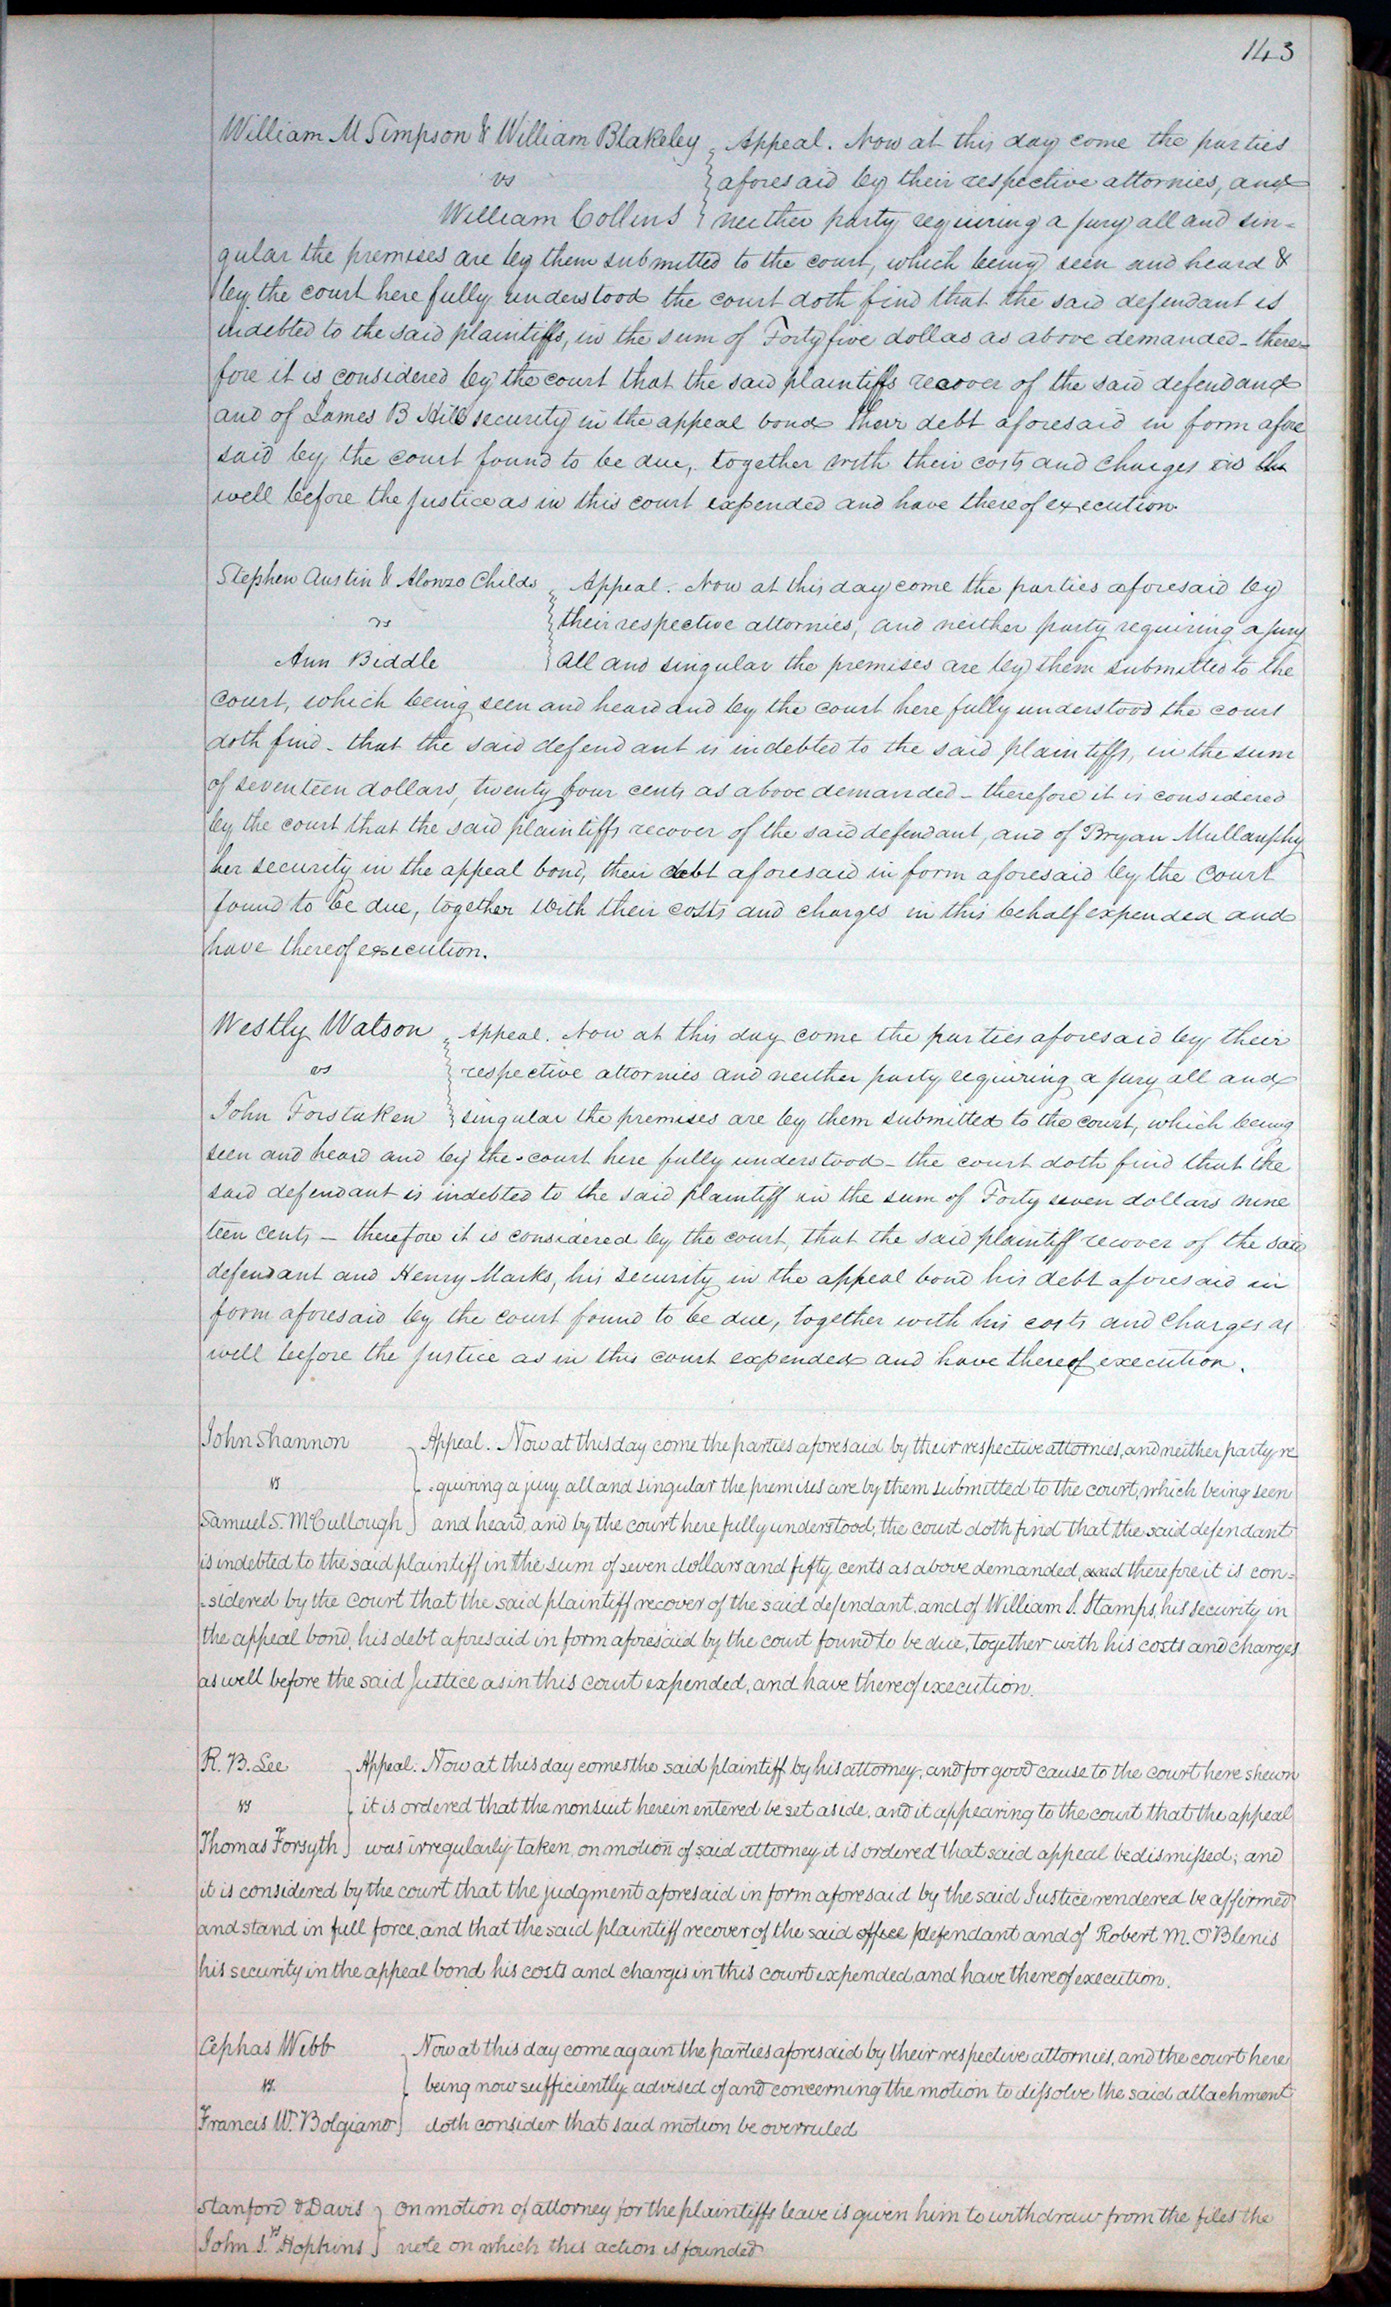 143
William M Simpson & William Blakeley Appeal. Now at this day come the parties
vs aforesaid by their respective attornies, and
William Collins neither party requiring a jury all and sin=
gular the premises are by them submitted to the court, which being seen and heard &
by the court here fully understood the court doth find that the said defendant is
indebted to the said plaintiffs, in the sum of Forty five dollas as above demanded - there=
fore it is considered by the court that the said plaintiffs recover of the said defendant
and of James B Hill security in the appeal bond their debt aforesaid in form afore
said by the court found to be due, together with their costs and charges as the
well before the Justice as in this court expended and have thereof execution.
Stephen Austin & Alonzo Childs Appeal. Now at this day come the parties aforesaid by
vs their respective attornies, and neither party requiring a jury
Ann Biddle all and singular the premises are by them submitted to the
court, which being seen and heard and by the court here fully understood the court
doth find - that the said defendant is indebted to the said plaintiffs, in the sum
of seventeen dollars, twenty four cents as above demanded - therefore it is considered
by the court that the said plaintiffs recover of the said defendant, and of Bryan Mullanphy
her security in the appeal bond, their debt aforesaid in form aforesaid by the court
found to be due, together with their costs and charges in this behalf expended and
have thereof execution.
Westly Watson Appeal. Now at this day come the parties aforesaid by their
vs respective attornies and neither party requiring a jury all and
John Forstaken singular the premises are by them submitted to the court, which being
seen and heard and by the court here fully understood - the court doth find that the
said defendant is indebted to the said plaintiff in the sum of Forty seven dollars nine
teen cents - therefore it is considered by the court, that the said plaintiff recover of the said
defendant and Henry Marks, his security in the appeal bond his debt aforesaid in
form aforesaid by the court found to be due, together with his costs and charges as
well before the Justice as in this court expended and have thereof execution.
John Shannon Appeal. Now at this day come the parties aforesaid by their respective attornies, and neither party re
vs quiring a jury all and singular the premises are by them submitted to the court, which being seen
Samuel S. McCullough and heard, and by the court here fully understood, the court doth find that the said defendant
is indebted to the said plaintiff in the sum of seven dollars and fifty cents as above demanded, and therefore it is con=
sidered by the court that the said plaintiff recover of the said defendant, and of William S. Stamps, his security in
the appeal bond, his debt aforesaid in form aforesaid by the court found to be due, together with his costs and charges
as well before the said Justice as in this court expended, and have thereof execution.
R. B. Lee Appeal. Now at this day comes the said plaintiff by his attorney, and for good cause to the court here shewn
vs it is ordered that the nonsuit herein entered be set aside, and it appearing to the court that the appeal
Thomas Forsyth was irregularly taken, on motion of said attorney it is ordered that said appeal be dismissed; and
it is considered by the court that the judgment aforesaid in form aforesaid by the said Justice rendered be affirmed
and stand in full force, and that the said plaintiff recover of the said defendant and of Robert M. O'Blenis
his security in the appeal bond his costs and charges in this court expended, and have thereof execution.
Cephas Webb Now at this day come again the parties aforesaid by their respective attornies, and the court here
vs. being now sufficiently advised of and concerning the motion to dissolve the said attachment
Francis W. Bolgiano doth consider that said motion be overruled
Stanford & Davis On motion of attorney for the plaintiffs leave is given him to withdraw from the files the
vs
John S. Hopkins note on which this action is founded